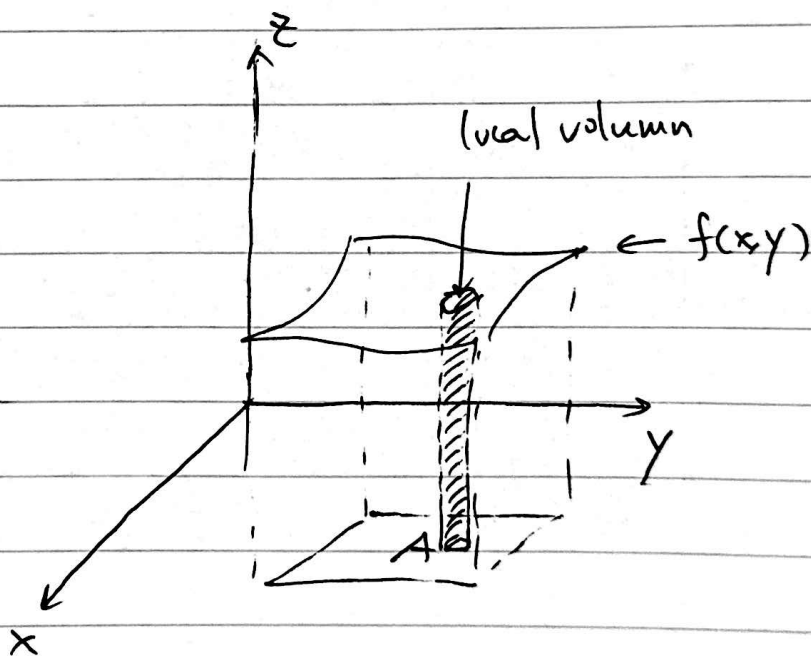 z
local volumn
← f(x,y)
y
A
x